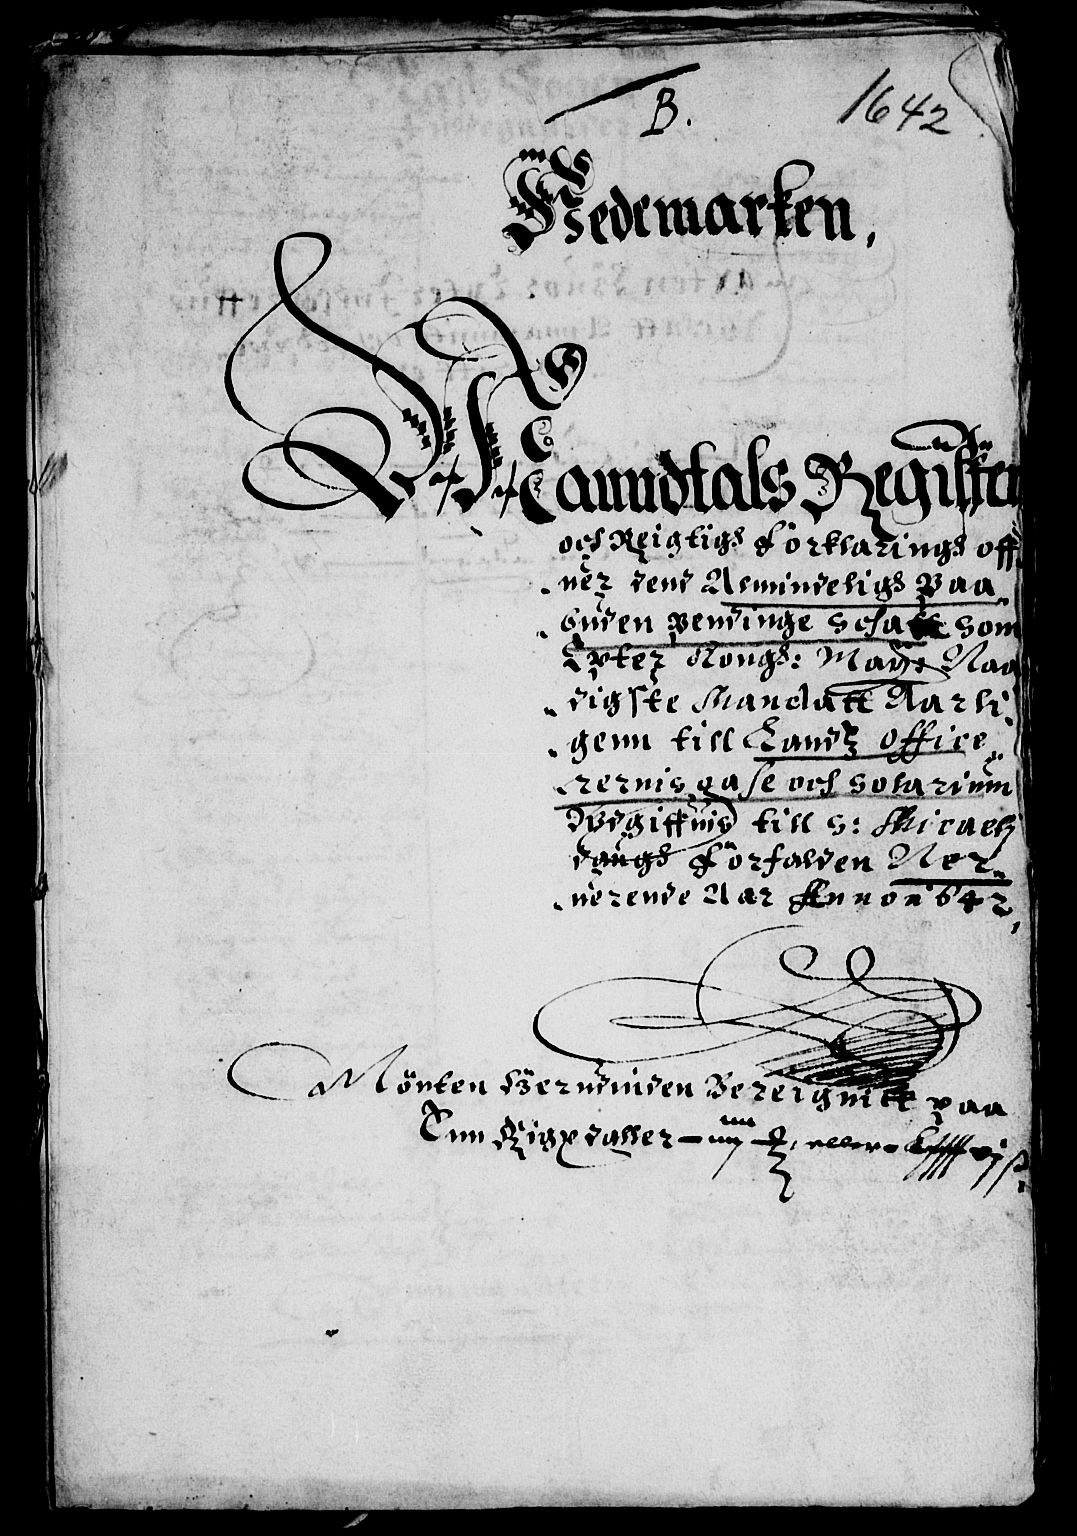 B.
1642
Hedemarken,
Maundtals Register
och Reigtigh Forklaringh off-
uer dend Almindelighe Paa-
buden pendinge schatt som
Epter Kongh: Mayt Naa-
digste Mandatt Aarli-
genn till Landtz office-
rernis gase och solarium
Wdgiffuis till S: Micaelj
daugh Forfalden Ner-
uerende Aar Anno 1642
Mönten herudinden Bereignitt paa
Enn Rigxdaller